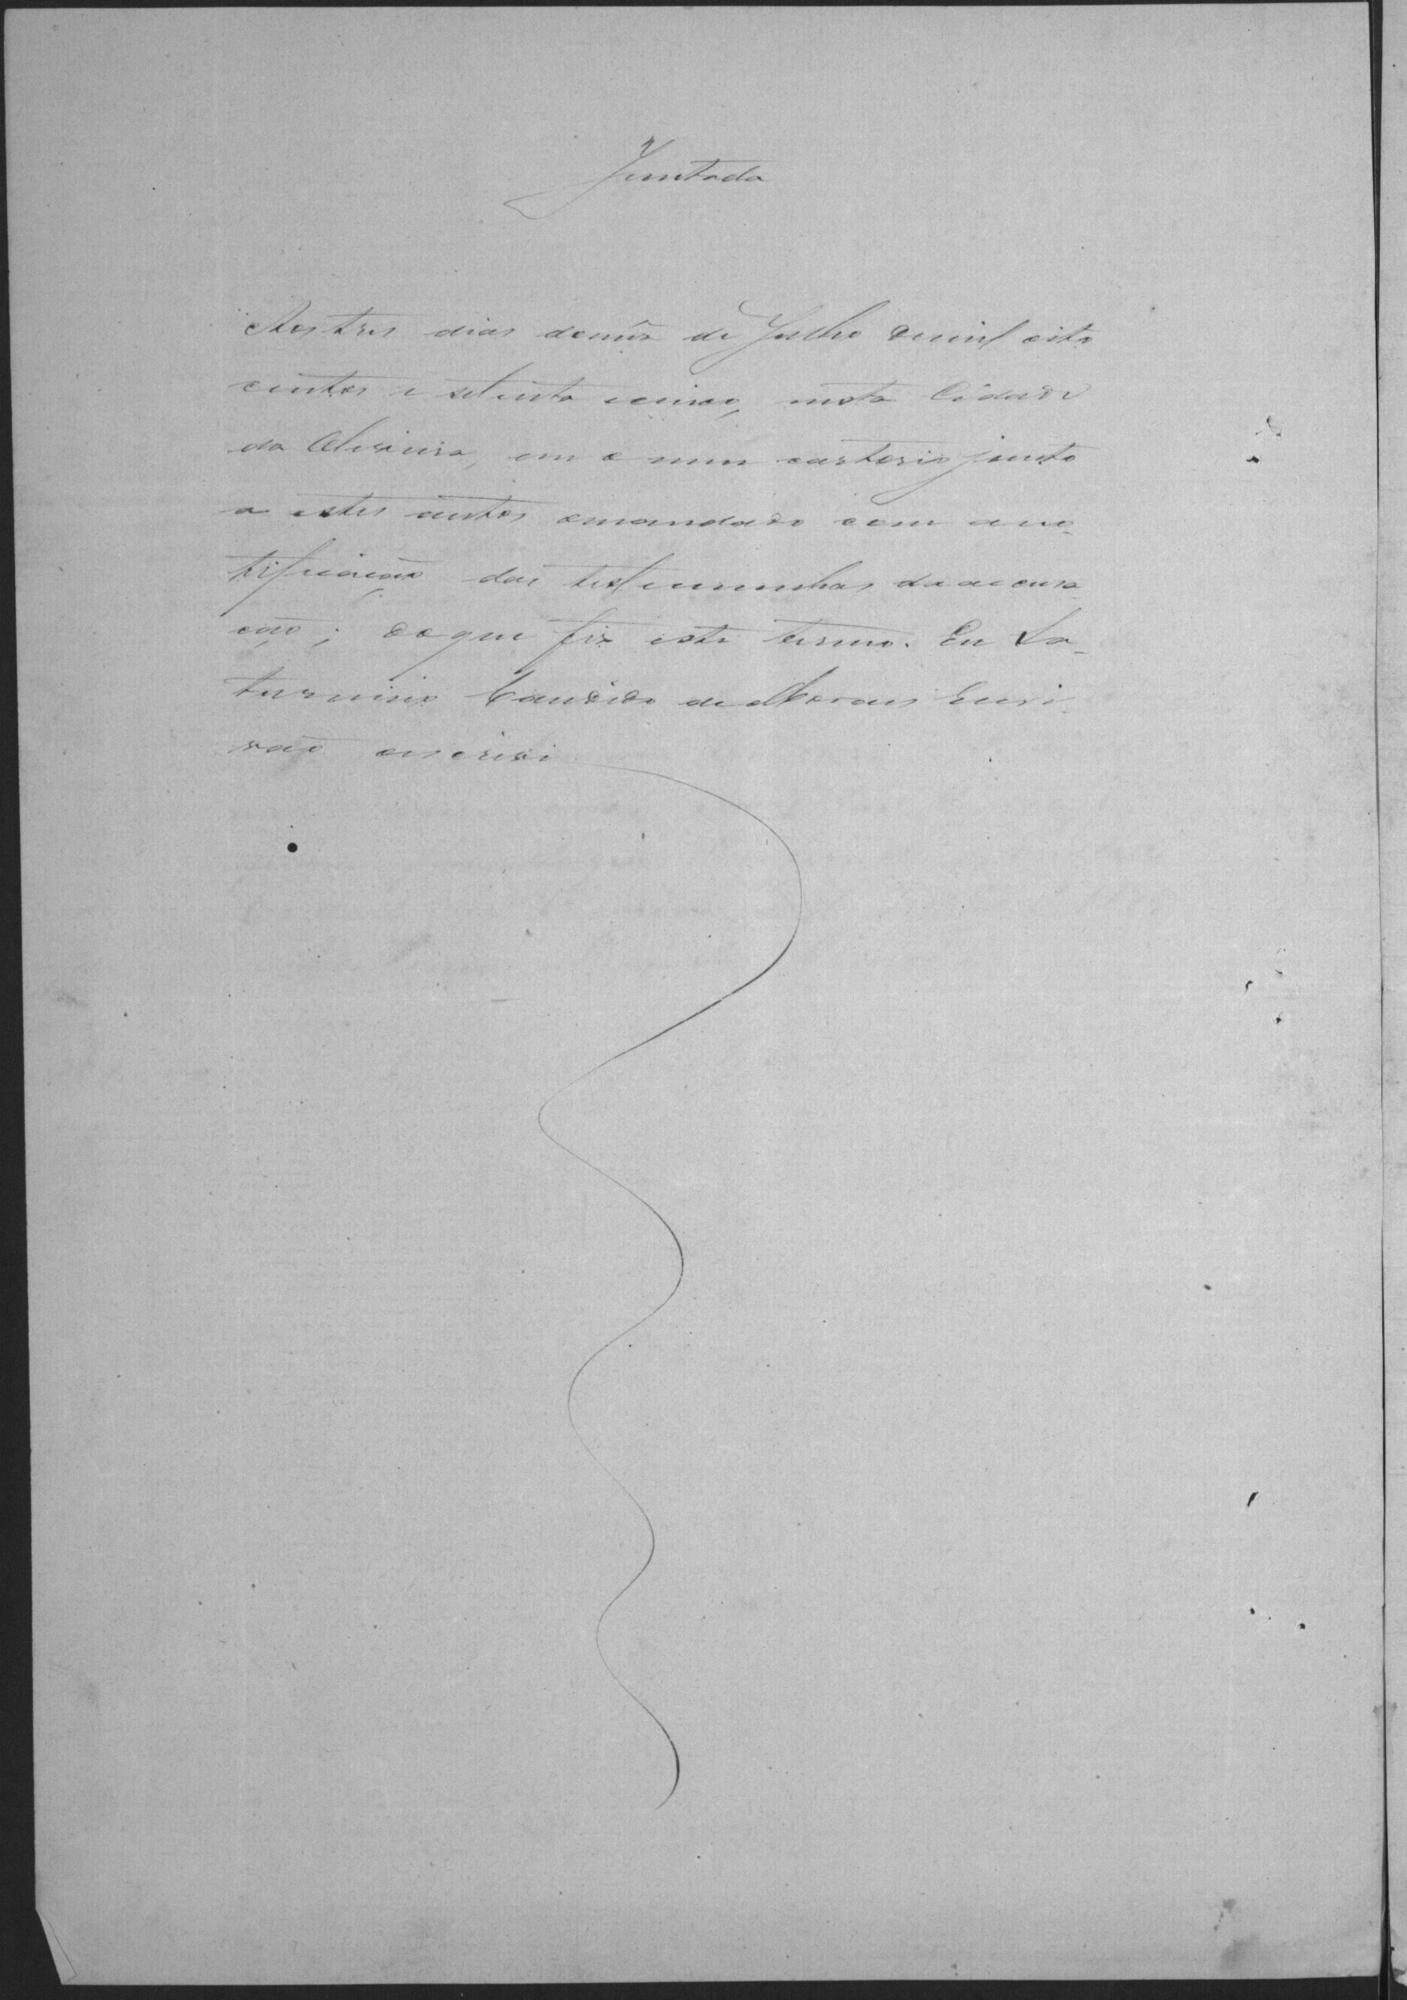 Juntada
Aos tres dias do mez de Julho de mil oito
centos e setenta e cinco, nesta Cidade
da Oliveira, em o meu cartorio junto
a estes autos o mandado com a no-
tificação das testemunhas da accusa-
ção; do que fiz este termo. Eu Sa-
turnino Candido de Moraes Escri-
vão o escrevi